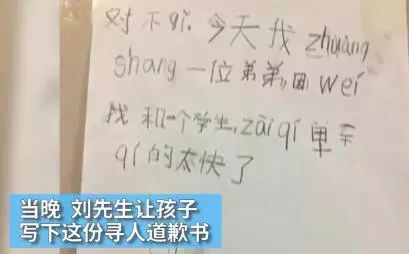 对不qǐ.今天我zhuàng
shang一位弟弟,因wéi
我和一个学生,zāi qí单车
qí的太快了
当晚 刘先生让孩子
写下这份寻人道歉书